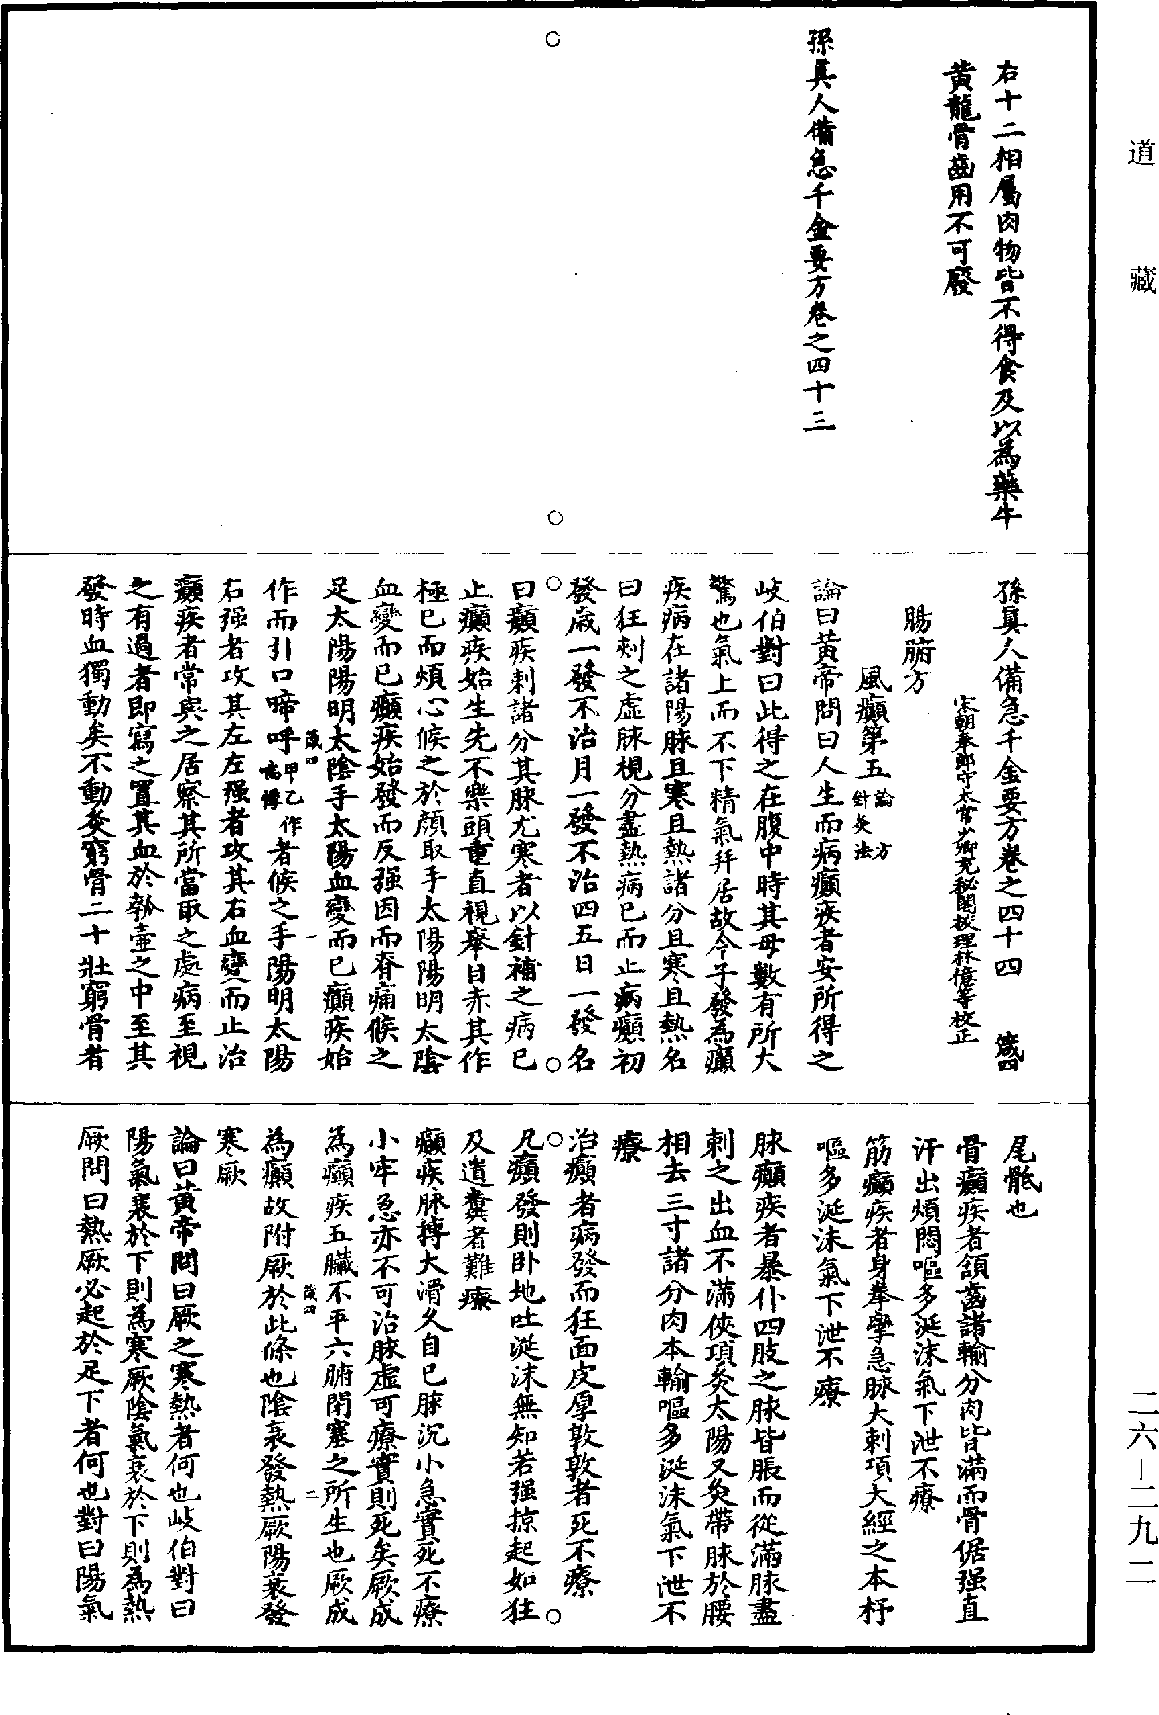 道藏
右十二相屬肉物皆不得食及以為藥牛
黃龍骨齒用不可廢
孫真人備急千金要方卷之四十三
孫真人備急千金要方卷之四十四 歲四
宋朝奉郎守太常少卿充秘閣校理林億等校正
腸腑方
風癲第五論 方 針灸法
論曰黃帝問曰人生而病癲疾者安所得之
岐伯對曰此得之在腹中時其母數有所大
驚也氣上而不下精氣并居故令子發為癲
疾病在諸陽脉且寒且熱諸分且寒且熱名
曰狂刺之虛脉視分盡熱病已而止病癲初
發歲一發不治月一發不治四五日一發名
曰癲疾刺諸分其脉尤寒者以針補之病已
止癲疾始生先不樂頭重直視舉目赤其作
極已而煩心候之於顏取手太陽陽明太陰
血變而已癲疾始發而反強因而脊痛候之
足太陽陽明太陰手太陽血變而已癲疾始
歲四 一
作而引口啼呼甲乙作喘悸者候之手陽明太陽
右強者攻其左左強者攻其右血變而止治
癲疾者常與之居察其所當取之處病至視
之有過者即寫之置其血於瓠壺之中至其
發時血獨動矣不動灸窮骨二十壯窮骨者
尾骶也
骨癲疾者頷齒諸輸分肉皆滿而骨倨強直
汗出煩悶嘔多涎沫氣下泄不療
筋癲疾者身拳攣急脉大刺項大經之本杼
嘔多涎沫氣下泄不療
脉癲疾者暴仆四肢之脉皆脹而從滿脉盡
刺之出血不滿俠項灸太陽又灸帶脉於腰
相去三寸諸分肉本輸嘔多涎沫氣下泄不
療
治癲者病發而狂面皮厚敦敦者死不療
凡癲發則卧地吐涎沫無知若強掠起如狂
及遺糞者難療
癲疾脉摶大滑久自已脉沉小急實死不療
小牢急亦不可治脉虛可療實則死矣厥成
為癲疾五臟不平六腑閉塞之所生也厥成
歲四 二
為癲故附厥於此條也陰衰發熱厥陽衰發
寒厥
論曰黃帝問曰厥之寒熱者何也岐伯對曰
陽氣衰於下則為寒厥陰氣衰於下則為熱
厥問曰熱厥必起於足下者何也對曰陽氣
二六—二九二